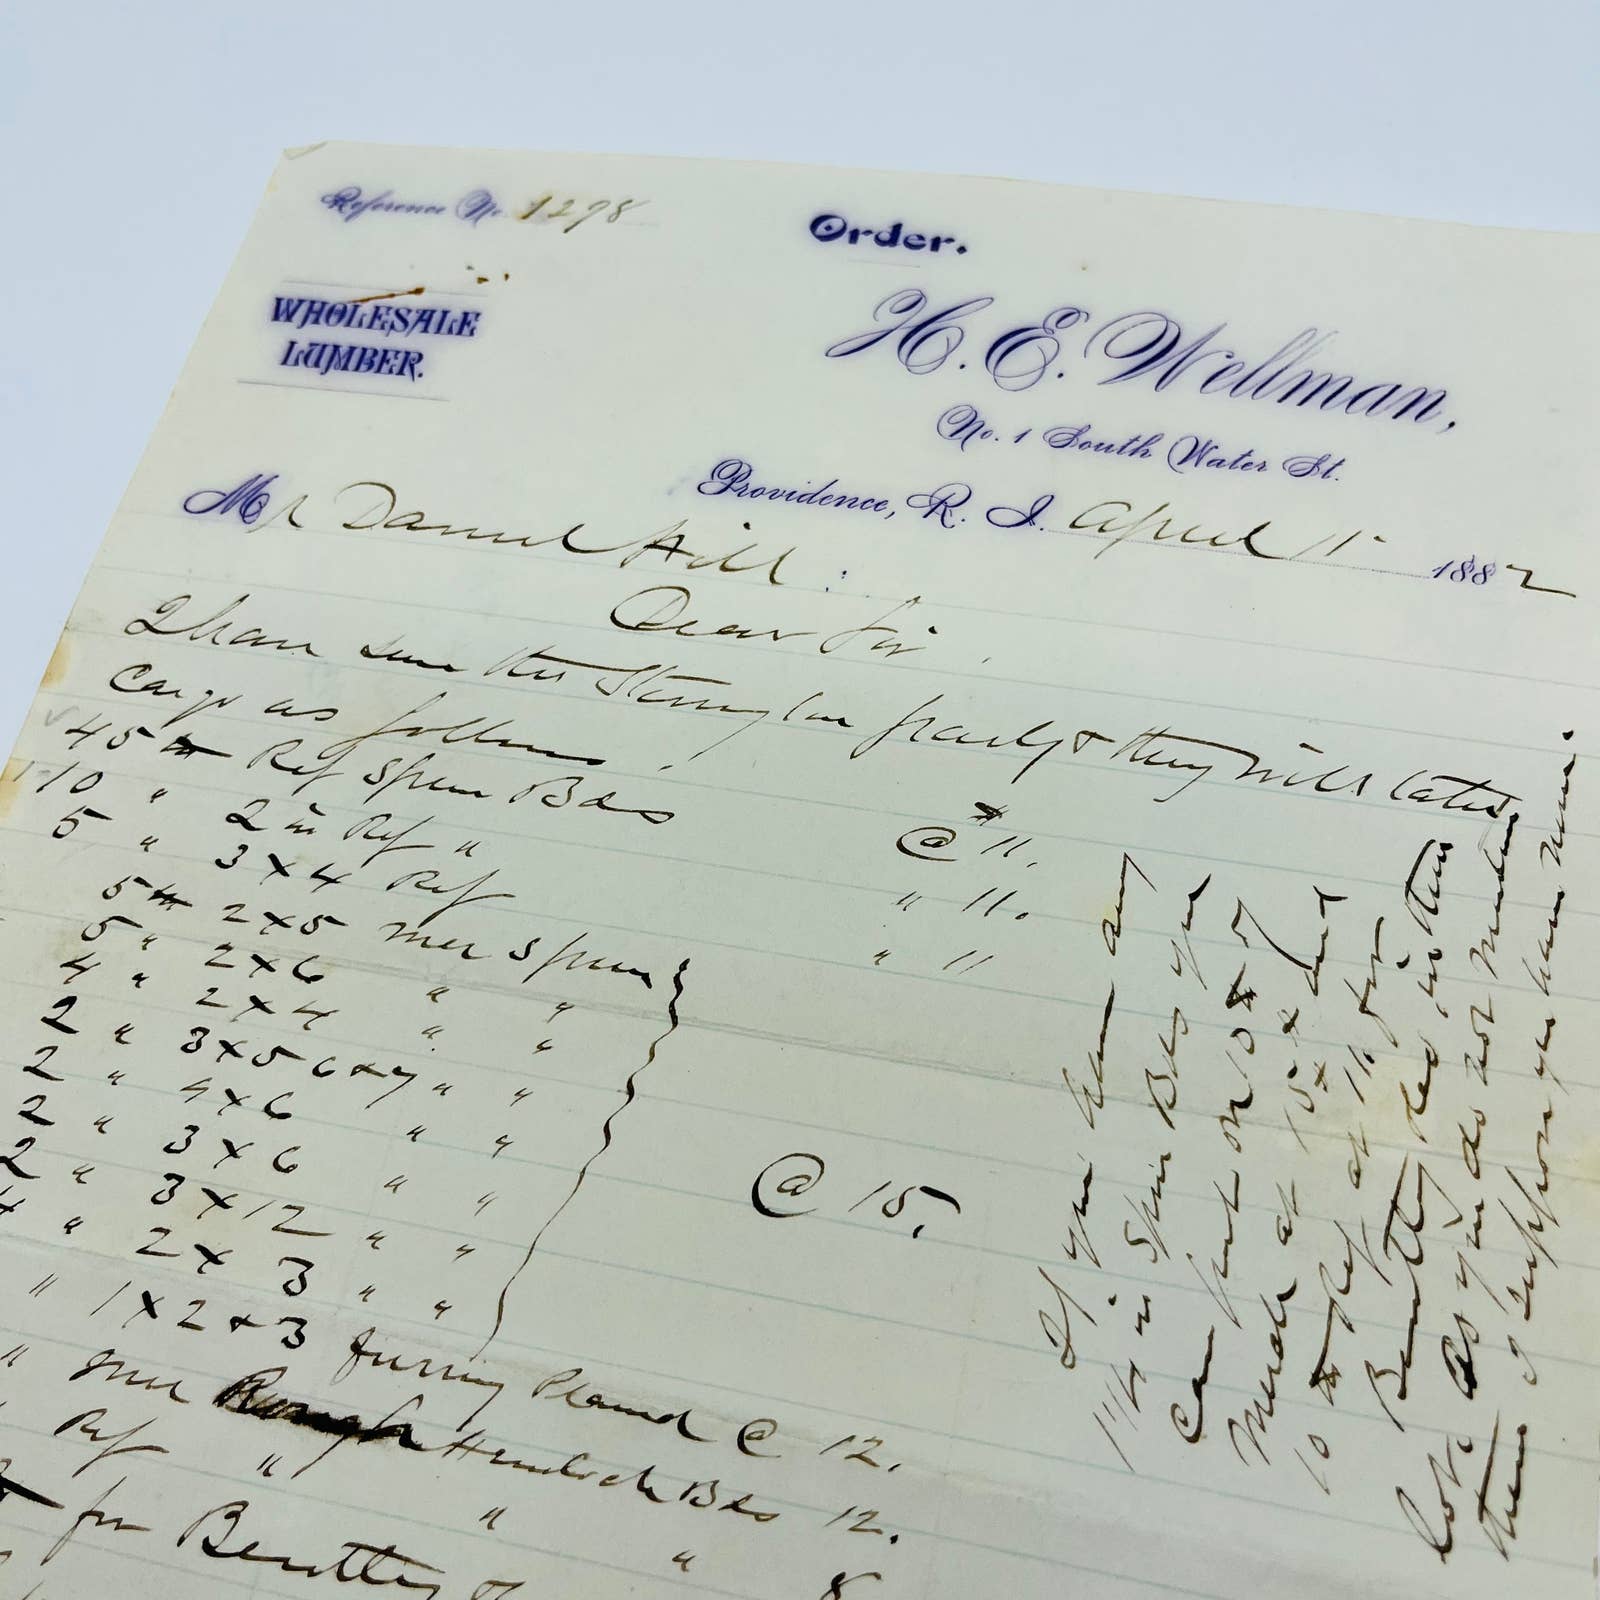 Reference No. 1298
Order.
WHOLESALE
LUMBER.
H. E. Wellman,
No. 1 South Water St.
Providence, R. I. April 15 1882
Mr Daniel Hill :
Dear Sir.
I have seen the Stonington party & they will take
cargo as follows.
45 m Ref Spruce Bds @ $11.
10 " 2 in Ref " " 11.
5 " 3 x 4 Ref " 11
5 m 2 x 5 mer Spruce
5 " 2 x 6 " "
4 " 2 x 4 " "
2 " 3 x 5 6 & 7 " "
2 " 4 x 6 " "
2 " 3 x 6 " "
2 " 3 x 12 " "
4 " 2 x 3 " "
@ 15.
" 1 x 2 & 3 furring Planed @ 12.
" mer Hemlock Bds 12.
Ref " " " 8
for
If you have any
1 1/4 in Spruce Bds you
can put on 10 m of
Merch at 15 and
10 m Ref at 11. for
in their
lot. as you do not mention
them I suppose you have none.